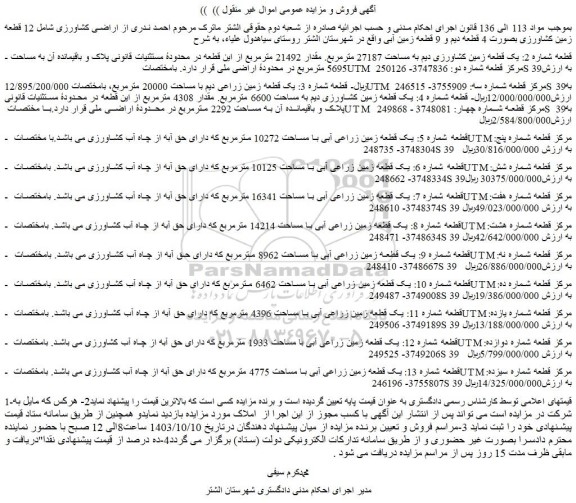 آگهی فروش و مزایده عمومی اموال غیر منقول )) ((
بموجب مواد 113 الی 136 قانون اجرای احکام مدنی و حسب اجرائیه صادره از شعبه دوم حقوقی الشتر ماترک مرحوم احمد ندری از اراضی کشاورزی شامل 12 قطعه
زمین کشاورزی بصورت 4 قطعه دیم و 9 قطعه زمین آبی واقع در شهرستان الشتر روستای سیاهدول علیاء، به شرح
قطعه شماره 2: یک قطعه زمین کشاورزی دیم به مساحت 27187 مترمربع. مقدار 21492 مترمربع از این قطعه در محدودهٔ مستثنیات قانونی پلاک و باقیمانده آن به مساحت ـ
به ارزشS 39مرکز قطعه شماره دو: 3747836- 250126 5695UTM مترمربع در محدودهٔ اراضی ملی قرار دارد. بامختصات
به39 Sمرکز قطعه شماره سه: 3755909- 246515 UTMریال- قطعه شماره 3: یک قطعه زمین زراعی دیم با مساحت 20000 مترمربع، بامختصات 12/895/200/000
ارزش12/000/000/000ریال- قطعه شماره 4: یک قطعه زمین کشاورزی دیم به مساحت 6600 مترمربع. مقدار 4308 مترمربع از این قطعه در محدودهٔ مستثنیات قانونی
به39 Sمرکز قطعه شماره چهار: 3748081- 249868 UTMپلاک و باقیمانده آن به مساحت 2292 مترمربع در محدودهٔ اراضی ملی قرار دارد.با مختصات
ارزش2/584/800/000ریال
مرکز قطعه شماره پنج:UTMقطعه شماره 5: یک قطعه زمین زراعی آبی با مساحت 10272 مترمربع که دارای حق آبه از چاه آب کشاورزی می باشد.با مختصات ـ
به ارزش30/816/000/000ریال39 3748304S- 248735
مرکز قطعه شماره شش:UTMقطعه شماره 6: یک قطعه زمین زراعی آبی با مساحت 10125 مترمربع که دارای حق آبه از چاه آب کشاورزی می باشد. بامختصات ـ
به ارزش 30375/000/000 ریال39 3748334S- 248662
مرکز قطعه شماره هفت:UTMقطعه شماره 7: یک قطعه زمین زراعی آبی با مساحت 16341 مترمربع که دارای حق آبه از چاه آب کشاورزی می باشد. بامختصات ـ
به ارزش49/023/000/000ریال39 3748374S- 248610
مرکز قطعه شماره هشت:UTMقطعه شماره 8: یک قطعه زمین زراعی آبی با مساحت 14214 مترمربع که دارای حق آبه از چاه آب کشاورزی می باشد. بامختصات ـ
به ارزش42/642/000/000ریال39 3748634S- 248471
مرکز قطعه شماره نه:UTMقطعه شماره 9: یک قطعه زمین زراعی آبی با مساحت 8962 مترمربع که دارای حق آبه از چاه آب کشاورزی می باشد. بامختصات ـ
به ارزش26/886/000/000ریال39 3748667S- 248410
مرکز قطعه شماره ده:UTMقطعه شماره 10: یک قطعه زمین زراعی آبی با مساحت 6462 مترمربع که دارای حق آبه از چاه آب کشاورزی می باشد. بامختصات ـ
به ارزش19/386/000/000ریال39 3749008S- 249487
مرکز قطعه شماره یازده:UTMقطعه شماره 11: یک قطعه زمین زراعی آبی با مساحت 4396 مترمربع که دارای حق آبه از چاه آب کشاورزی می باشد. بامختصات ـ
به ارزش13/188/000/000ریال39 3749189S- 249506
مرکز قطعه شماره دوازده:UTMقطعه شماره 12: یک قطعه زمین زراعی آبی با مساحت 1933 مترمربع که دارای حق آبه از چاه آب کشاورزی می باشد. بامختصات ـ
به ارزش5/799/000/000ریال39 3749206S- 249525
مرکز قطعه شماره سیزده:UTMقطعه شماره 13: یک قطعه زمین زراعی آبی با مساحت 4775 مترمربع که دارای حق آبه از چاه آب کشاورزی می باشد. بامختصات ـ
به ارزش14/325/000/000ریال39 3755807S- 246196
قیمتهای اعلامی توسط کارشناس رسمی دادگستری به عنوان قیمت پایه تعیین گردیده است و برنده مزایده کسی است که بالاترین قیمت را پیشنهاد نماید2- هرکس که مایل به-1
شرکت در مزایده است می تواند پس از انتشار این آگهی با کسب مجوز از این اجرا از املاک مورد مزایده بازدید نمایدو همچنین از طریق سامانه ستاد قیمت
پیشنهادی خود را ثبت نماید 3-مراسم فروش و تعیین برنده مزایده از میان پیشنهاد دهندگان درتاریخ 1403/10/10 ساعت8الی 12 صبح با حضور نماینده
محترم دادسرا بصورت غیر حضوری و از طریق سامانه تدارکات الکترونیکی دولت (ستاد) برگزار می گردد4-ده درصد از قیمت پیشنهادی نقدا"دریافت و
مابقی ظرف مدت 15 روز پس از مراسم مزایده دریافت می شود .
محمدکرم سیفی
مدیر اجرای احکام مدنی دادگستری شهرستان الشتر
ParsNamadData
۰۲۱-۸۸۳۴۹۶۷۰-۵